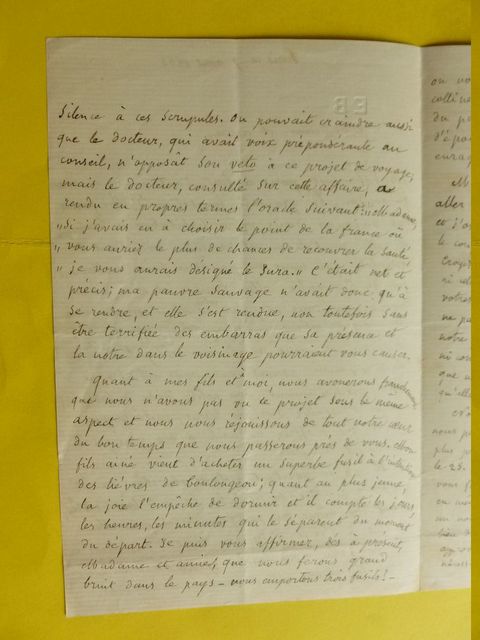 EB
silence à ces scrupules. On pouvait craindre aussi
que le docteur, qui avait voix prépondérante au
conseil, n'opposât son veto à ce projet de voyage,
mais le docteur, consulté sur cette affaire, a
rendu en propres termes l'oracle suivant: "Madame,
"si j'avais eu à choisir le point de la france où
"vous auriez le plus de chances de recouvrer la santé,
"je vous aurais désigné le Jura." C'était net et
précis; ma pauvre sauvage n'avait donc qu'à
se rendre, et elle s'est rendue, non toutefois sans
être terrifiée des embarras que sa présence et
la notre dans le voisinage pourraient vous causer.
Quant à mes fils et moi, nous avouerons franchement
que nous n'avons pas vu ce projet sous le même
aspect et nous nous réjouissons de tout notre cœur
du bon temps que nous passerons près de vous. Mon
fils ainé vient d'acheter un superbe fusil à l'intention
des lièvres de boulongeou; quant au plus jeune,
la joie l'empêche de dormir et il compte les jours,
les heures, les minutes qui le séparent du moment
du départ. Je puis vous affirmer, dès à présent,
Madame et amie, que nous ferons grand
bruit dans le pays - nous emportons trois fusils! -
ou vo
colline
du pa
d'épo
aller
et j'a
le con
croye
ni vot
votre
ne pa
notre
ni con
que n
qu'elle
nous p
plus j
le 23.
vous f
en me
un no